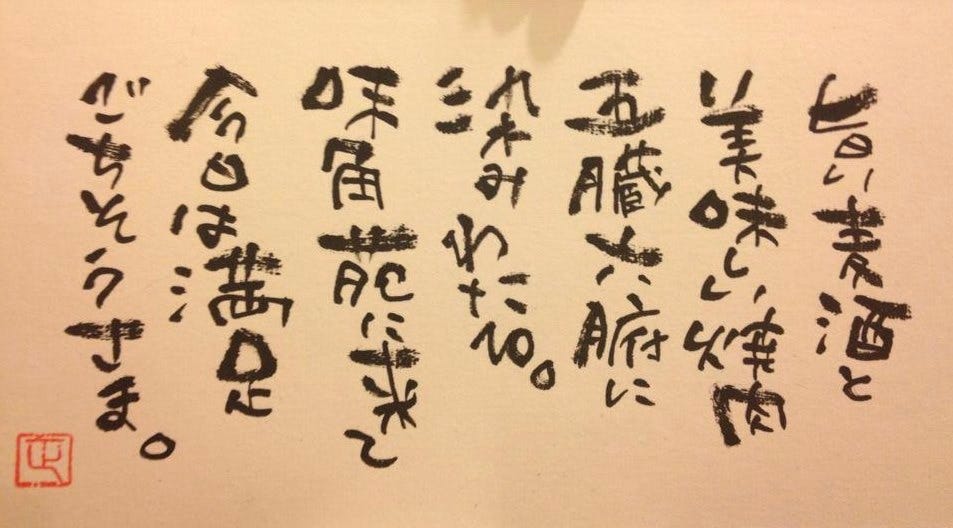 旨い麦酒と
美味しい焼肉
五臓六腑に
染みわたる。
味角苑に来て
今日は満足
ごちそうさま。